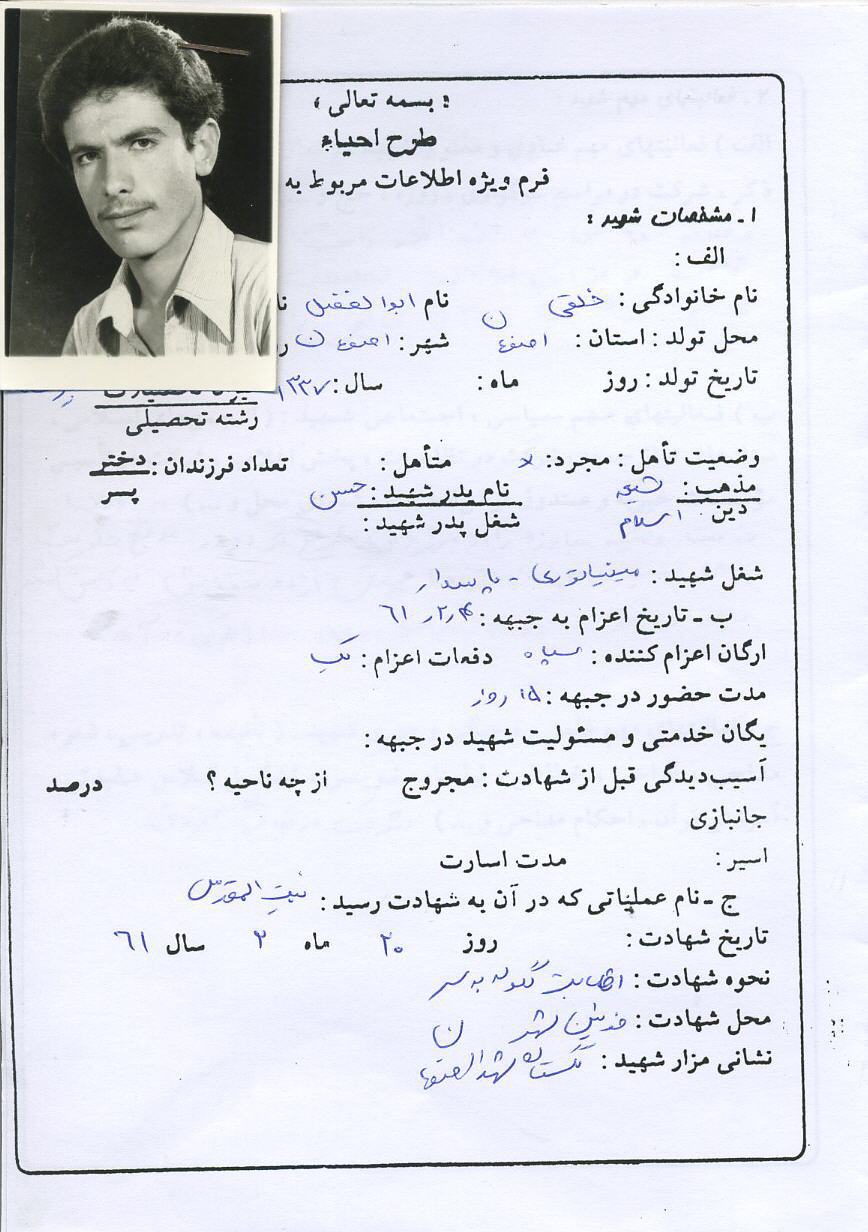 بسمه تعالی ؛
طرح احیاء
فرم ویژه اطلاعات مربوط به
۱ـ مشخصات شهید :
الف :
نام خانوادگی : خلقی نام ابوالفضل
محل تولد : استان : اصفهان شهر : اصفهان
تاریخ تولد : روز ماه : سال : ۱۳۳۷
رشته تحصیلی
وضعیت تأهل : مجرد : × متأهل : تعداد فرزندان : دختر
مذهب : شیعه نام پدر شهید : حسن پسر
دین اسلام شغل پدر شهید :
شغل شهید : مینیاتوری - پاسدار
ب ـ تاریخ اعزام به جبهه : ۶۱
ارگان اعزام کننده : سپاه دفعات اعزام : یک
مدت حضور در جبهه : ۱۵ روز
یگان خدمتی و مسئولیت شهید در جبهه :
آسیب‌دیدگی قبل از شهادت : مجروح از چه ناحیه ؟ درصد
جانبازی
اسیر : مدت اسارت
ج ـ نام عملیاتی که در آن به شهادت رسید : بیت المقدس
تاریخ شهادت : روز ۲۰ ماه ۲ سال ۶۱
نحوه شهادت : اصابت گلوله به سر
محل شهادت : خونین شهر
نشانی مزار شهید : گلستان شهدا اصفهان